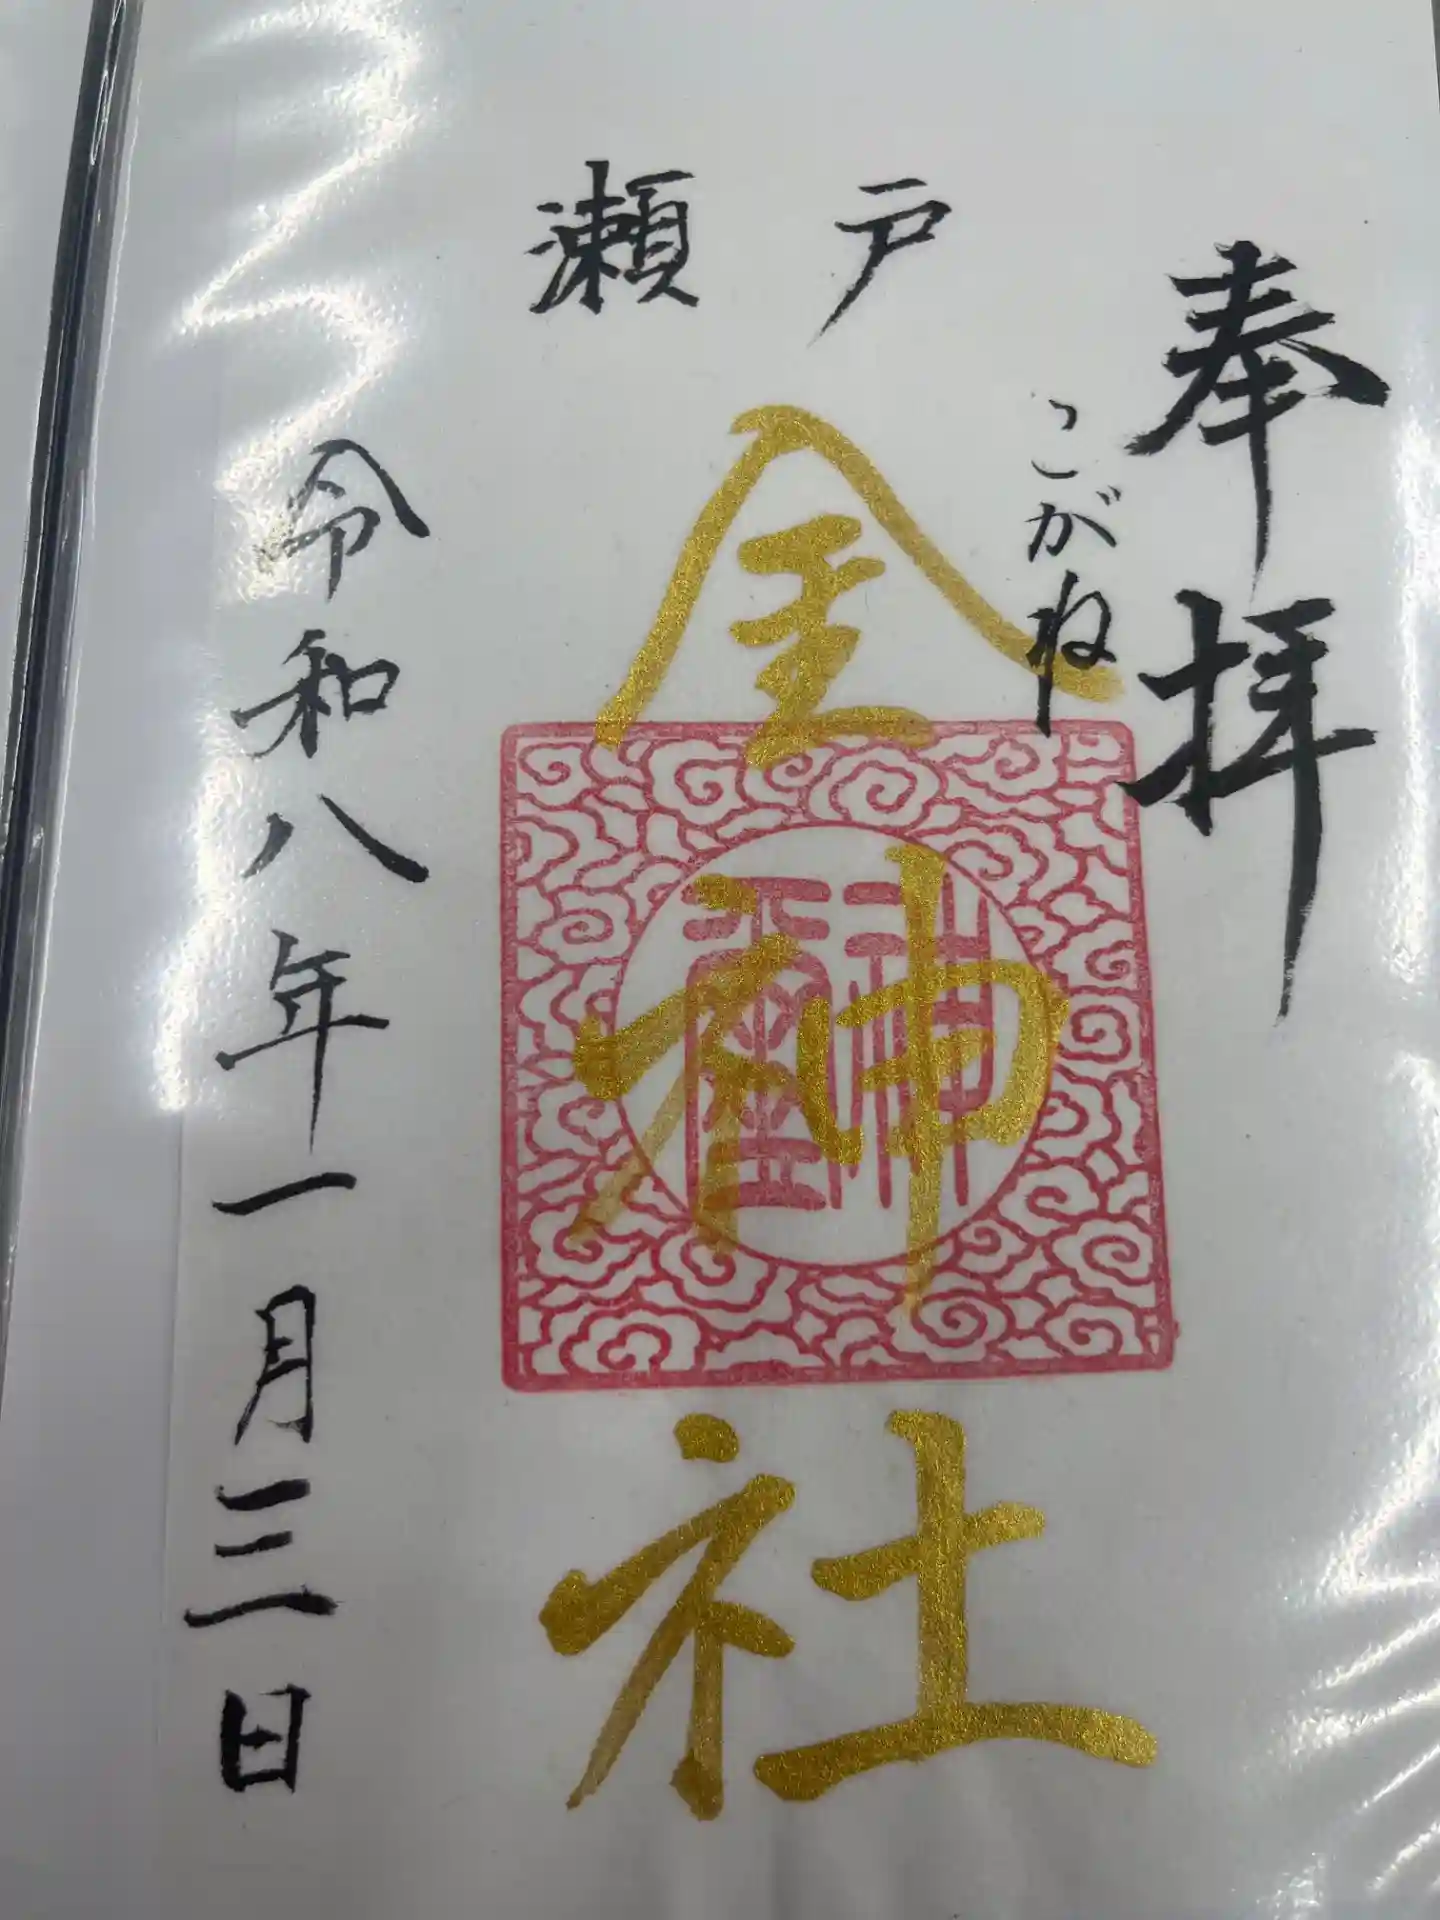 奉拝
こがね
瀬戸
金神社
令和八年一月三日